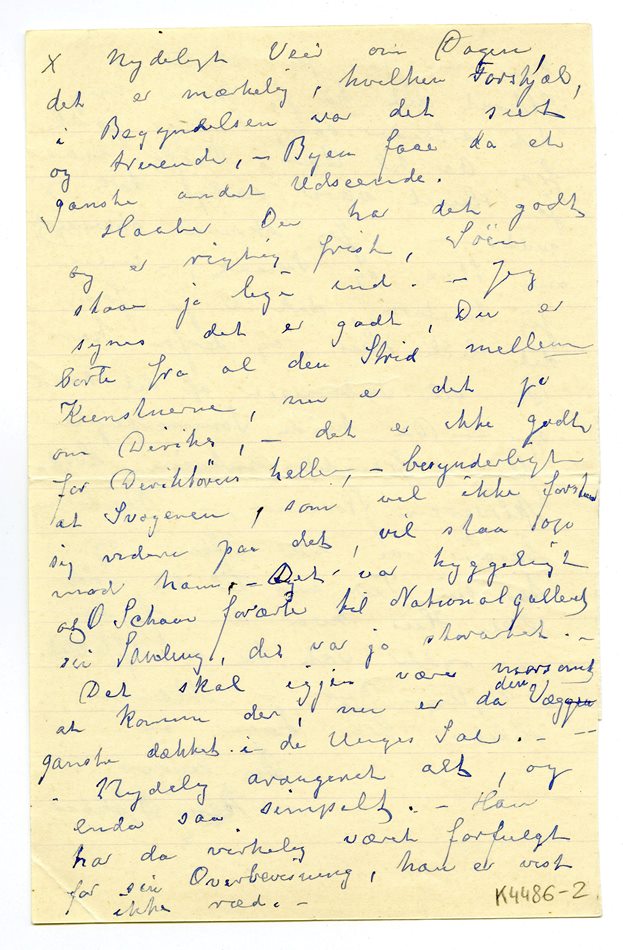 x Nydeligt Veir om Dagen,
det er mærkelig, hvilken Forskjæl,
i Begyndelsen var det surt
og treende, – Byen faar da et
ganske andet Udseende.
Haaber Du har det godt
og er rigtig frisk, Söen
skaar jo lige ind. – Jeg
synes det er godt, Du er
borte fra al den Strid mellem
Kunstnerne, nu er det jo
om Diriks, – det er ikke godt
for Direktören heller, – besynderligt
at Svogeren, som vel ikke forstaar
sig videre paa det, vil staa op
mod ham, – Det var hyggeligt
at O Schou forærte til Nationalgalleriet
sin Samling, det var jo storartet. –
Det skal igjen være morsomt
at komme der, nu er da den Væggen
ganske dækket i de Unges Sal. – –
Nydelig arrangeret alt, og
enda saa simpelt. – Han
har da virkelig været forfulgt
for sin Overbevisning, han er vist
ikke ræd. –
K4486-2